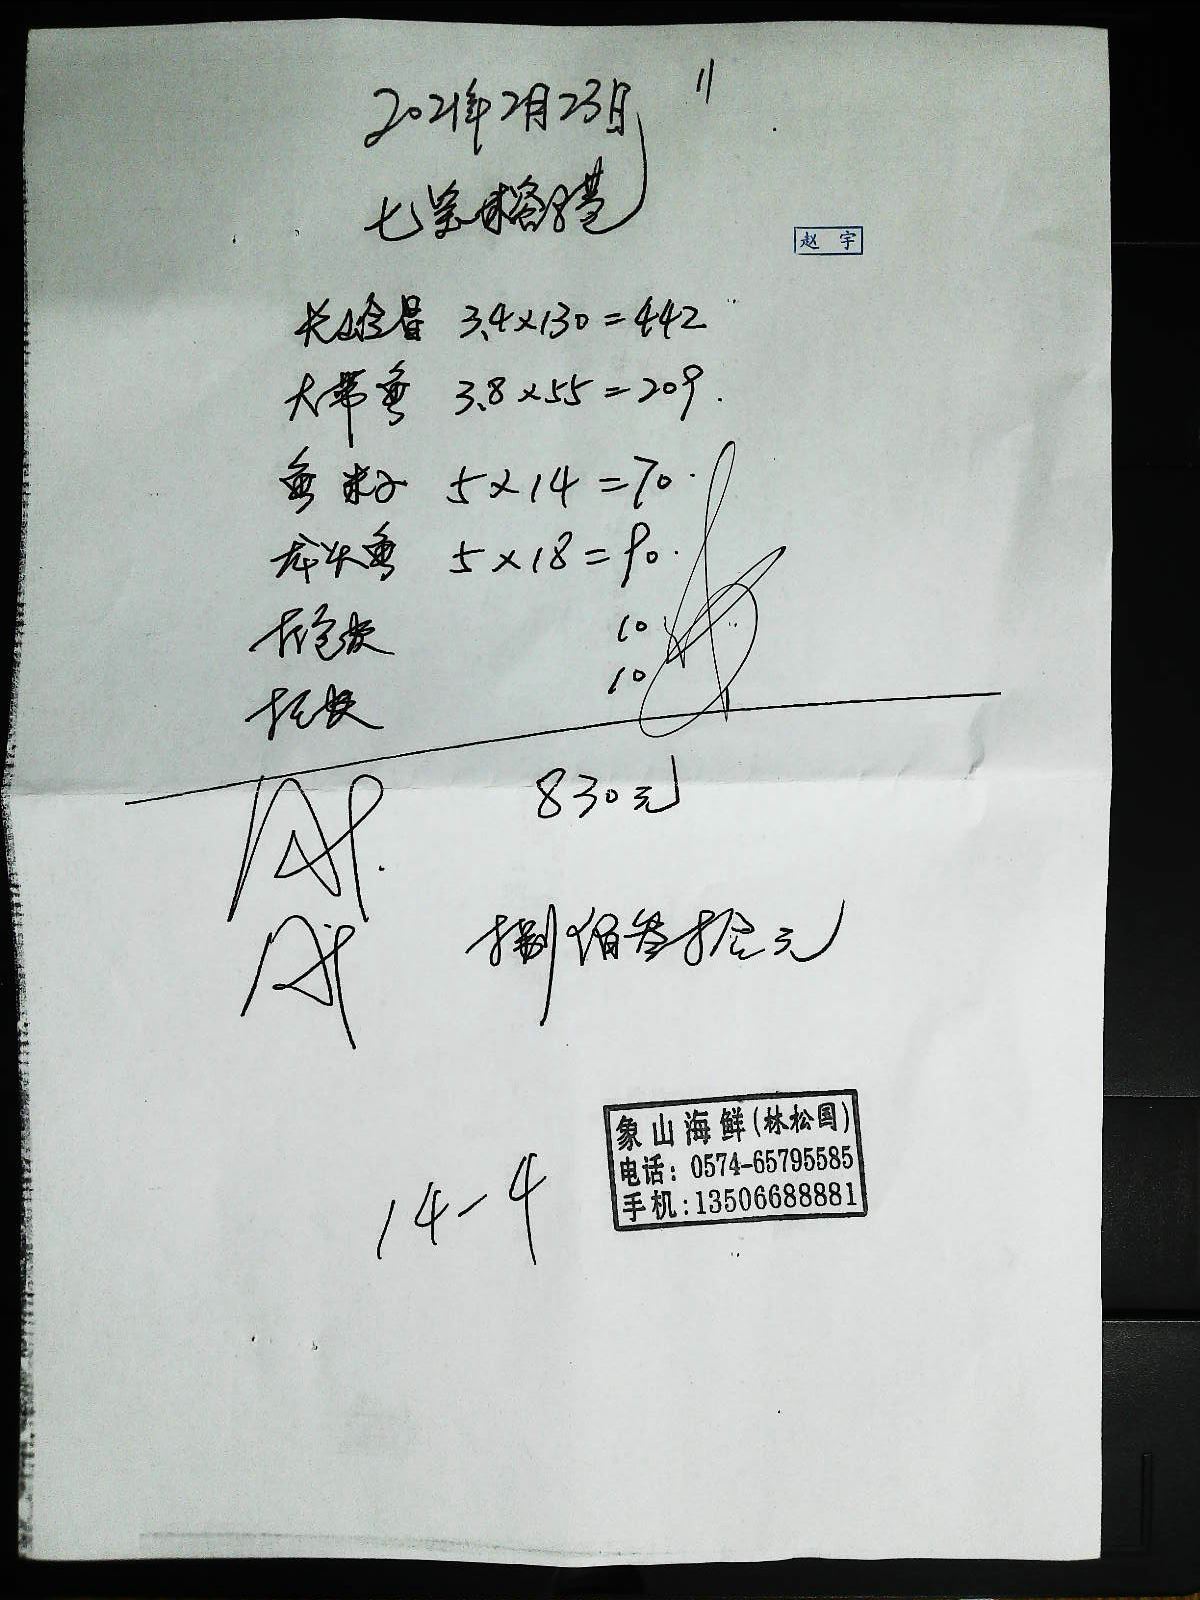 2021年2月23日 11
赵 宇
3.4×130=442
大带鱼 3.8×55=209.
鱼 籽 5×14=70.
龙头鱼 5×18=90.
打包费 10
10
830元
捌佰叁拾元
象山海鲜(林松国)
电话: 0574-65795585
手机:13506688881
14-4